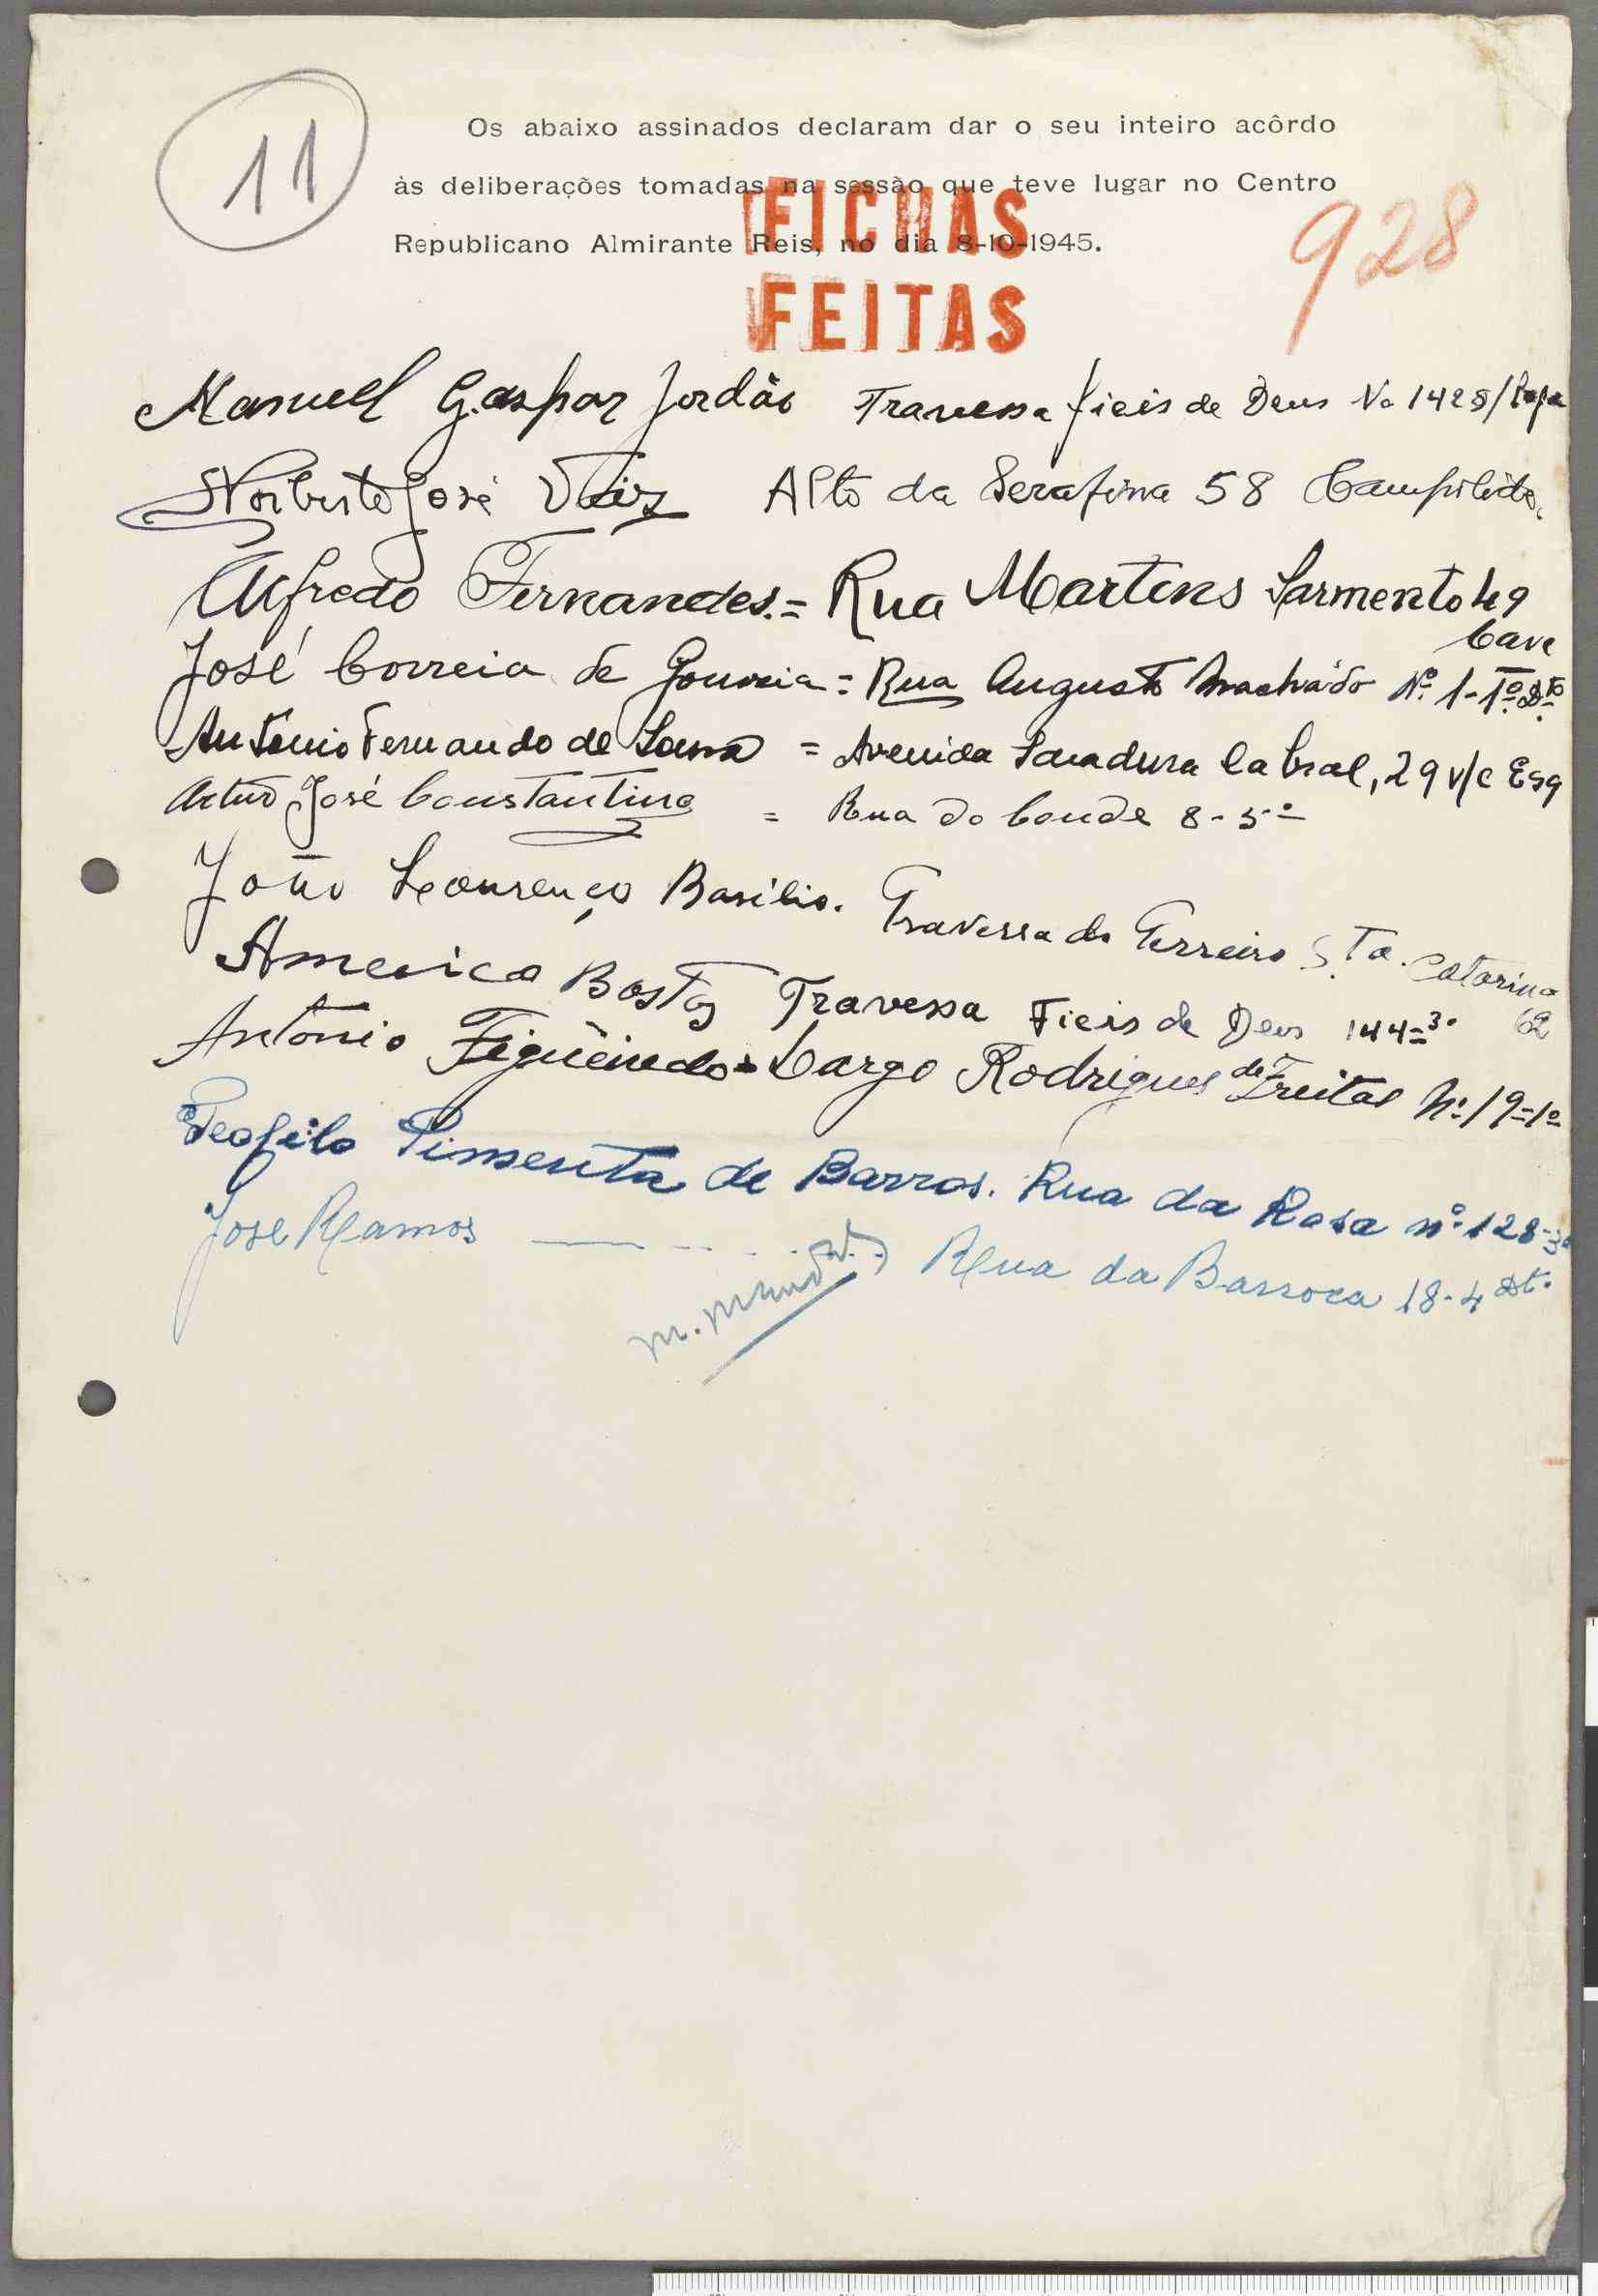 11
Os abaixo assinados declaram dar o seu inteiro acôrdo
às deliberações tomadas na sessão que teve lugar no Centro
Republicano Almirante Reis, no dia 8-10-1945.
FICHAS
FEITAS
928
Manuel Gaspar Jordão Travessa fieis de Deus No 142 /Loja
Norberto José Vaiz Alto da Serafina 58 Campolide
Alfredo Fernandes. = Rua Martens Sarmento 49
Cave
José Correia de Gouveia = Rua Augusto Machado Nº 1-1º Dto
António Fernando de = Avenida Sacadura Cabral, 29 r/c Esq
Artur José Constantino = Rua do Conde 8-5º
João Lourenço Basilio. Travessa do Terreiro Sta. Catarina
62
Americo Bastos Travessa Fieis de Deus 144-3º
António Figueiredo = Largo Rodrigues de Freitas Nº 19-1º
Teofilo Pimenta de Barros. Rua da Rosa nº 128-3º
José Ramos Rua da Barroca 18-4 Dt.